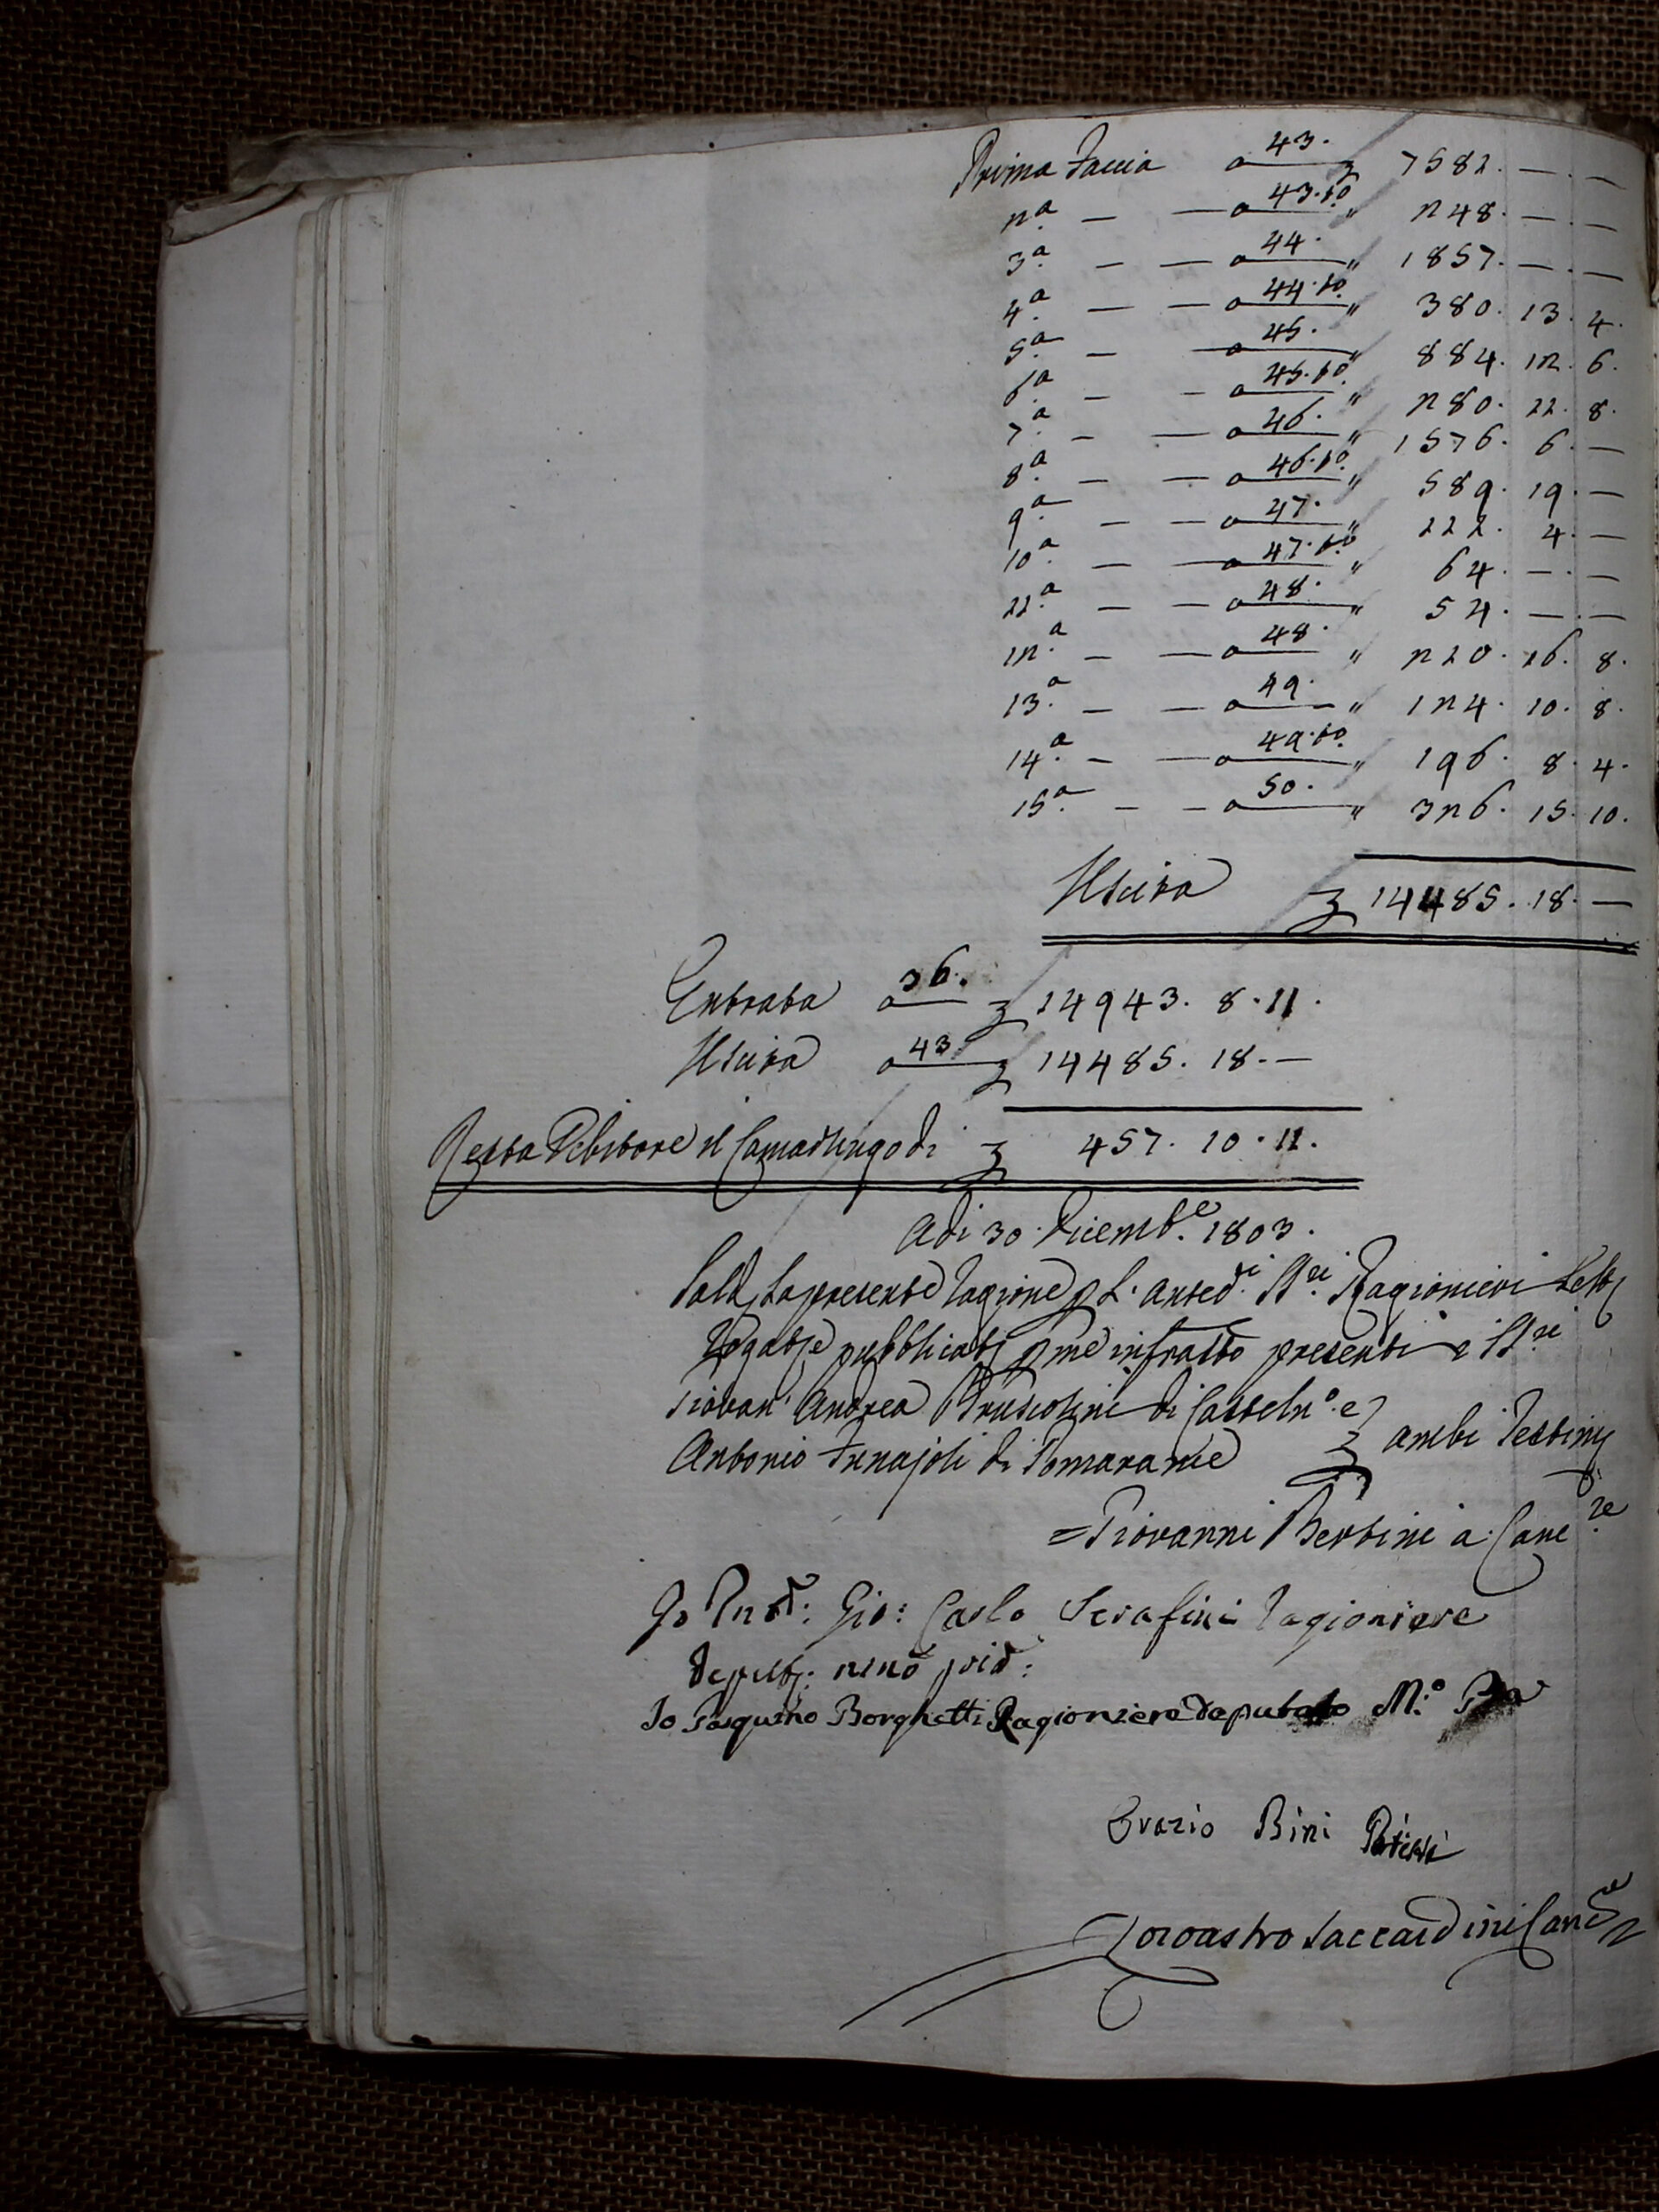 Prima Faccia a 43. 7581. — . —
2.a — — a 43.to " 248. — . —
3.a — — a 44. " 1857. — . —
4.a — — a 44.to " 380. 13. 4.
5.a — — a 45. " 884. 12. 6.
6.a — — a 45.to " 280. 11. 8.
7.a — — a 46. " 1576. 6. —
8.a — — a 46.to " 589. 19. —
9.a — — a 47. " 111. 4. —
10.a — — a 47.to " 64. — . —
11.a — — a 48. " 54. — . —
12.a — — a 48. " 210. 16. 8.
13.a — — a 49. " 124. 10. 8.
14.a — — a 49.to " 196. 8. 4.
15.a — — a 50. " 326. 15. 10.
Uscita 14485. 18. —
Entrata a 36. 14943. 8. 11.
Uscita a 43 14485. 18. —
Resta Debitore il Camarlingo di 457. 10. 11.
Adi 30. Dicemb.e 1803.
la presente ragione p anted.i SS.ri Ragionieri
e pubblicatj p me infratto presenti i SS.ri
Giovan' Andrea Bruscolini di Casteln.o e
Antonio Funajoli di Pomarance ambi Testimj
= Giovanni Bertini a. Canc.re
Io Gio: Carlo Serafini Ragioniere
Io Pasquino Borghetti Ragioniere deputato M.o P.a
Orazio Bini
Zoroastro Saccardini Canc.re